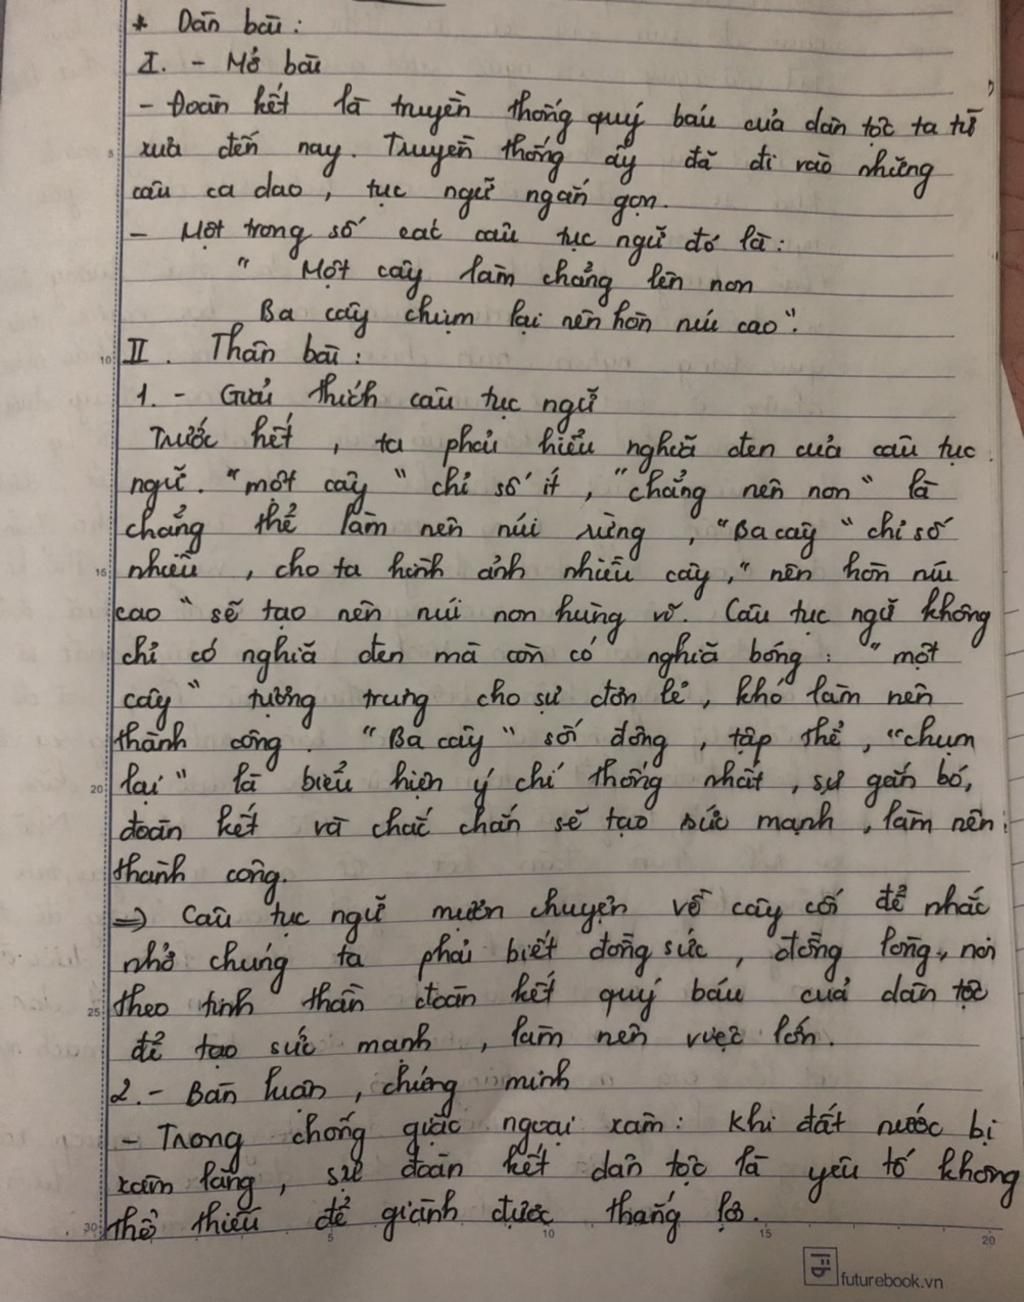 * Dàn bài :
I. - Mở bài
- Đoàn kết là truyền thống quý báu của dân tộc ta từ
xưa đến nay. Truyền thống ấy đã đi vào những
câu ca dao, tục ngữ ngắn gọn.
- Một trong số các câu tục ngữ đó là :
" Một cây làm chẳng lên non
Ba cây chụm lại nên hòn núi cao".
II. Thân bài :
1. - Giải thích câu tục ngữ
Trước hết, ta phải hiểu nghĩa đen của câu tục
ngữ. "một cây" chỉ số ít, "chẳng nên non" là
chẳng thể làm nên núi rừng, "Ba cây" chỉ số
nhiều, cho ta hình ảnh nhiều cây, "nên hòn núi
cao" sẽ tạo nên núi non hùng vĩ. Câu tục ngữ không
chỉ có nghĩa đen mà còn có nghĩa bóng : "một
cây" tượng trưng cho sự đơn lẻ, khó làm nên
thành công. "Ba cây" số đông, tập thể, "chụm
lại" là biểu hiện ý chí thống nhất, sự gắn bó,
đoàn kết và chắc chắn sẽ tạo sức mạnh, làm nên
thành công.
=> Câu tục ngữ mượn chuyện về cây cối để nhắc
nhở chúng ta phải biết đồng sức, đồng lòng, noi
theo tinh thần đoàn kết quý báu của dân tộc
để tạo sức mạnh, làm nên việc lớn.
2. - Bàn luận, chứng minh
- Trong chống giặc ngoại xâm : Khi đất nước bị
xâm lăng, sự đoàn kết dân tộc là yếu tố không
thể thiếu để giành được thắng lợi.
5 10 15 20
futurebook.vn